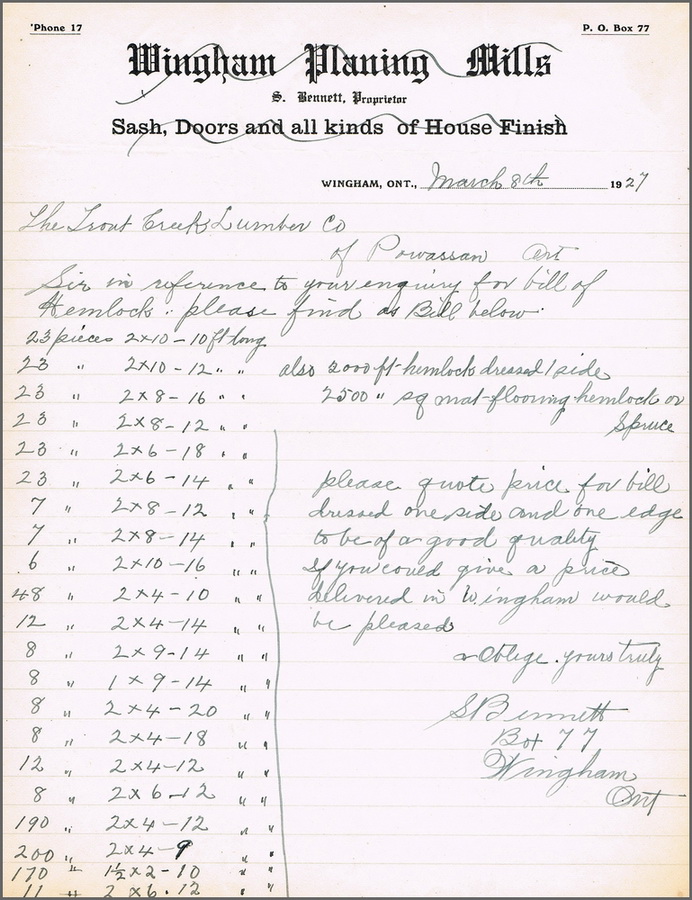 'Phone 17
P. O. Box 77
Wingham Planing Mills
S. Bennett, Proprietor
Sash, Doors and all kinds of House Finish
WINGHAM, ONT., March 8th 1927
The Trout Creek Lumber Co
of Powassan Ont
Sir in reference to your enquiry for bill of
Hemlock. please find as Bill below.
23 pieces 2x10 - 10 ft long
23 " 2x10 - 12 " "
also 2000 ft hemlock dressed 1 side
23 " 2x8 - 16 " "
2500 " sq mat flooring hemlock or
Spruce
23 " 2x8 - 12 " "
23 " 2x6 - 18 " "
23 " 2x6 - 14 " "
7 " 2x8 - 12 " "
7 " 2x8 - 14 " "
6 " 2x10 - 16 " "
48 " 2x4 - 10 " "
12 " 2x4 - 14 " "
8 " 2x9 - 14 " "
8 " 1x9 - 14 " "
8 " 2x4 - 20 " "
8 " 2x4 - 18 " "
12 " 2x4 - 12 " "
8 " 2x6 - 12 " "
190 " 2x4 - 12 " "
200 " 2x4 - 9 " "
170 " 1½x2 - 10 " "
11 " 2x6 . 12 " "
please quote price for bill
dressed one side and one edge
to be of a good quality
If you could give a price
delivered in Wingham would
be pleased
& Oblige. yours truly
S Bennett
Box 77
Wingham
Ont